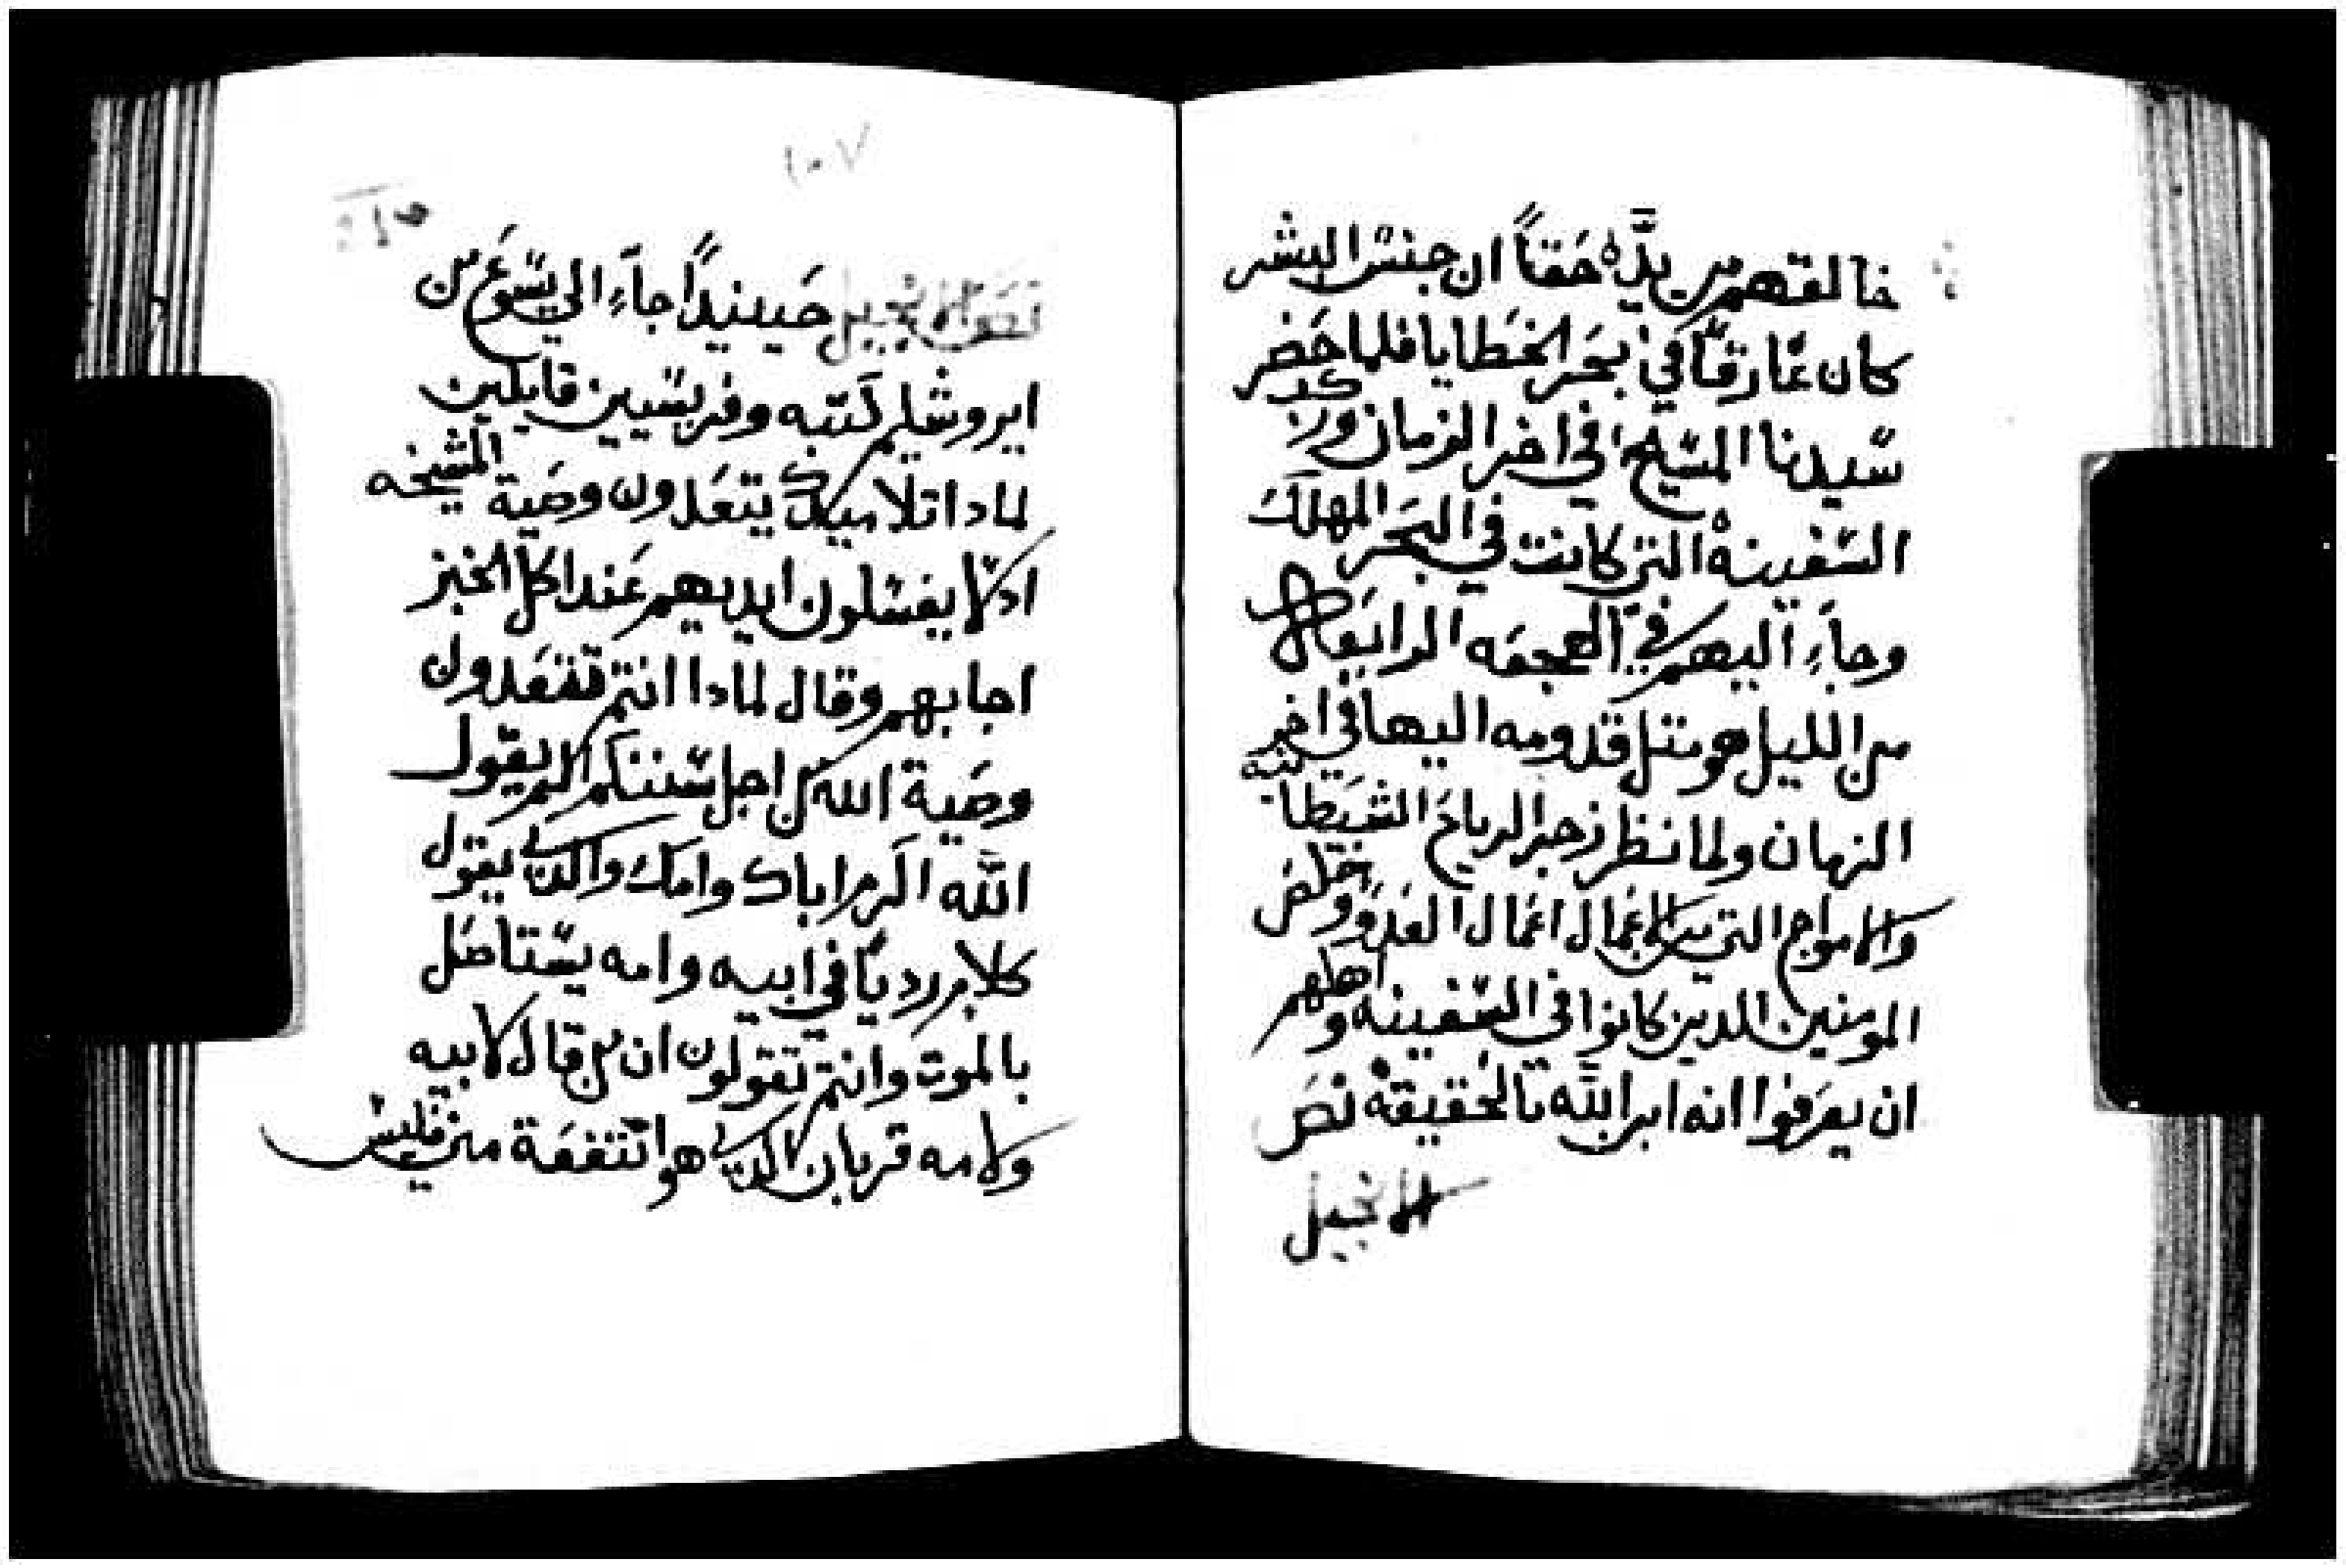 خالقهم من يده حقاً ان جنس البشر
كان غارقاً في بحر الخطايا فلما حضر
سيدنا المسيح في اخر الزمان ودبر
السفينه التي كانت في البحر المهلك
وجاء اليهم في الهجعه الرابعه
من الليل هو مثل قدومه اليها في اخر
الزمان ولما نظر زجر الرياح الشيطانيه
والامواج التي من اعمال اعمال العدو وخلص
المومنين الدين كانوا في السفينه واهلهم
ان يعرفوا انه ابن الله بالحقيقه نص
الانجيل
١٠٧
نص الانجيل حينيداً جاء الي يسوع من
ايروشليم كتبه وفريسيين قايلين
لمادا تلاميدك يتعدون وصية المشيخه
اد لا يغسلون ايديهم عند اكل الخبز
اجابهم وقال لمادا انتم تتعدون
وصية الله من اجل سننكم الم يقول
الله اكرم اباك وامك والدي يقول
كلام ردياً في ابيه وامه يستاصل
بالموت وانتم تقولون ان من قال لابيه
ولامه قربان الدي هو انتفعة مني فليس